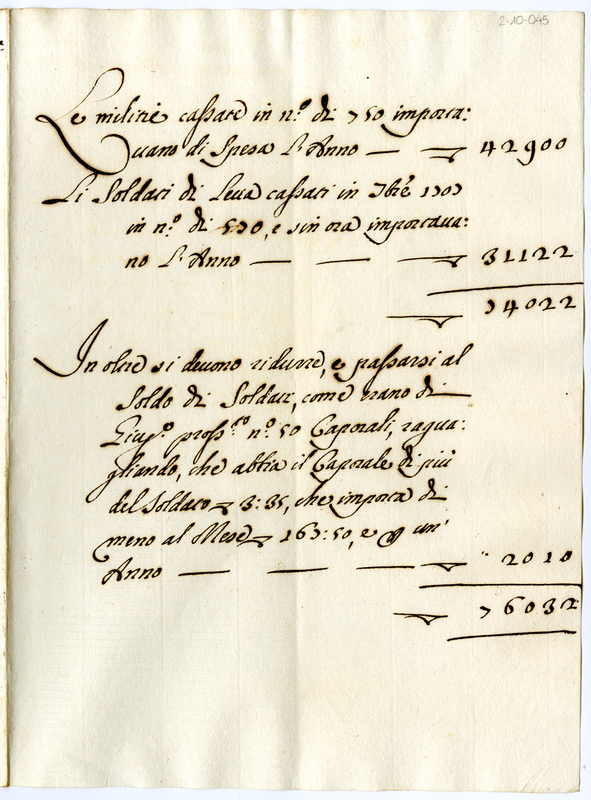 2-10-045
Le milizie cassate in n.º di 750 importa:
vano di Spesa l'Anno — 42900
Li Soldati di Leva cassati in Xbre 1707
in n.º di 570, e sin ora importava:
no l'Anno — — — 31122
74022
In oltre si devono ridurre, e passarsi al
Soldo di Soldati, come erano di
Giug.º pross.to n.º 50 Caporali, ragua:
gliando, che abbia il Caporale di più
del Soldato 3:35, che importa di
meno al Mese 167:50, e p un'
Anno — — — 2010
76032